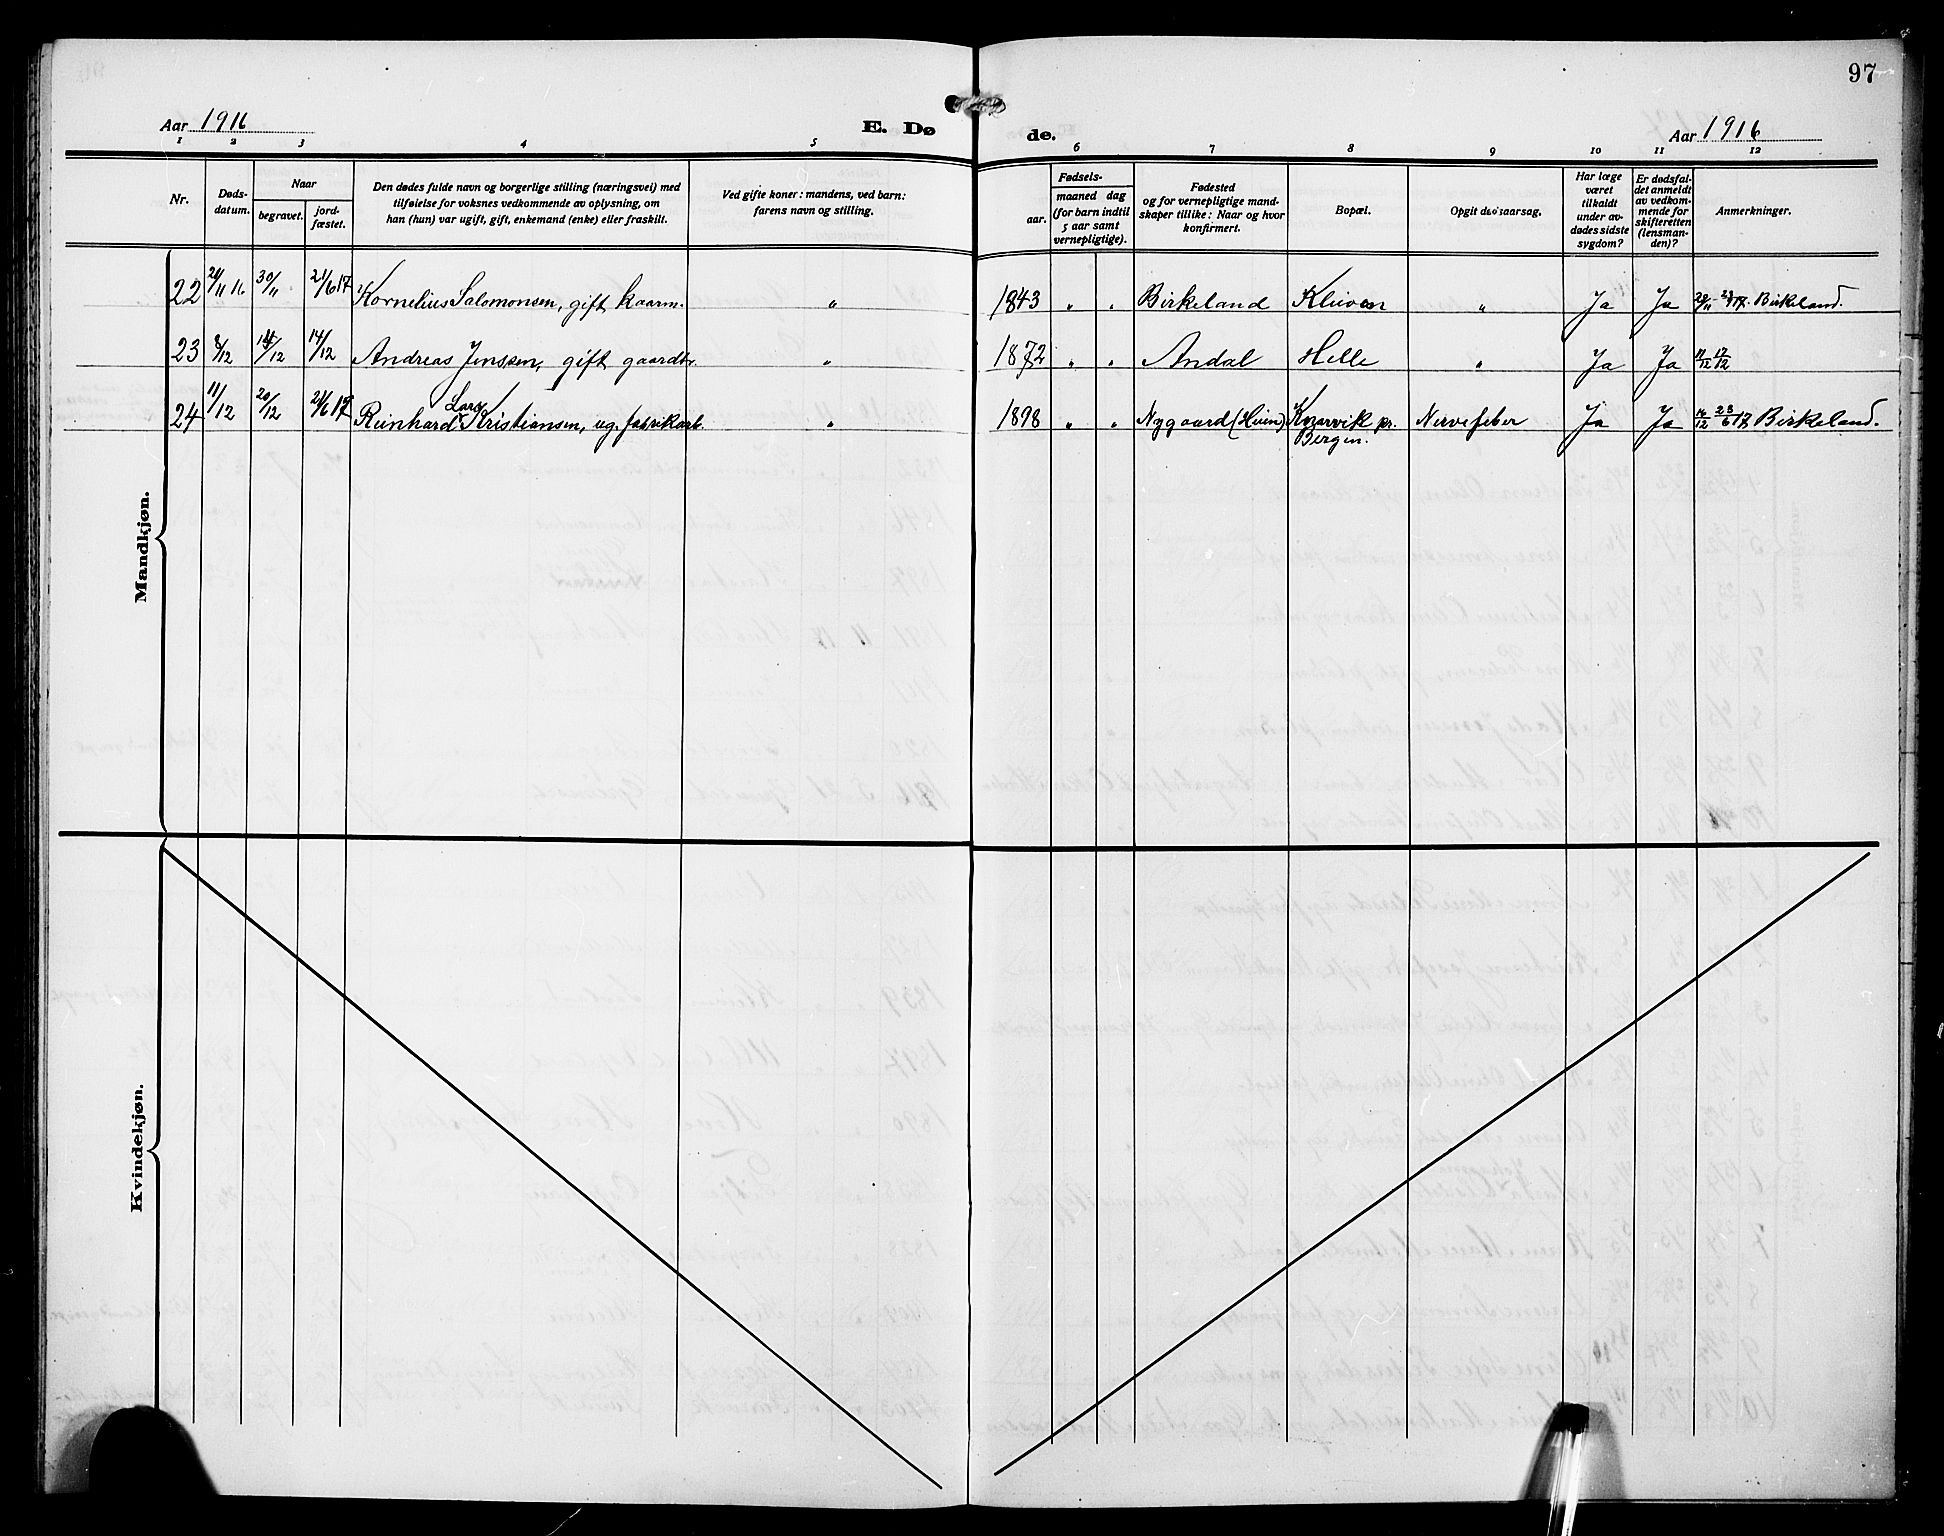 97
Aar 1916
E. Døde.
Aar 1916
1 2 3 4 5 6 7 8 9 10 11 12
Nr.
Døds-
datum.
Naar
begravet.
jord-
fæstet.
Den dødes fulde navn og borgerlige stilling (næringsvei) med
tilføielse for voksnes vedkommende av oplysning, om
han (hun) var ugift, gift, enkemand (enke) eller fraskilt.
Ved gifte koner: mandens, ved barn:
farens navn og stilling.
Fødsels-
aar.
maaned dag
(for barn indtil
5 aar samt
vernepligtige).
Fødested
og for vernepligtige mand-
skaper tillike: Naar og hvor
konfirmert.
Bopæl.
Opgit dødsaarsag.
Har læge
været
tilkaldt
under av-
dødes sidste
sygdom?
Er dødsfal-
det anmeldt
av vedkom-
mende for
skifteretten
(lensman-
den)?
Anmerkninger.
Mandkjøn.
22 30/11 21/6 17 Kornelius Salomonsen, gift kaarm. " 1843 " " Birkeland " Ja Ja Birkeland.
23 8/12 14/12 Andreas Jenssen, gift gaardbr. " 1872 " " Andal Helle " Ja Ja 17/12
Lars
24 11/12 20/12 Reinhard Kristiansen, ug. fabrikarb. " 1898 " " Nygaard Knarvik pr. Nervefeber Ja Ja 23/6 17 Birkeland.
Bergen.
Kvindekjøn.